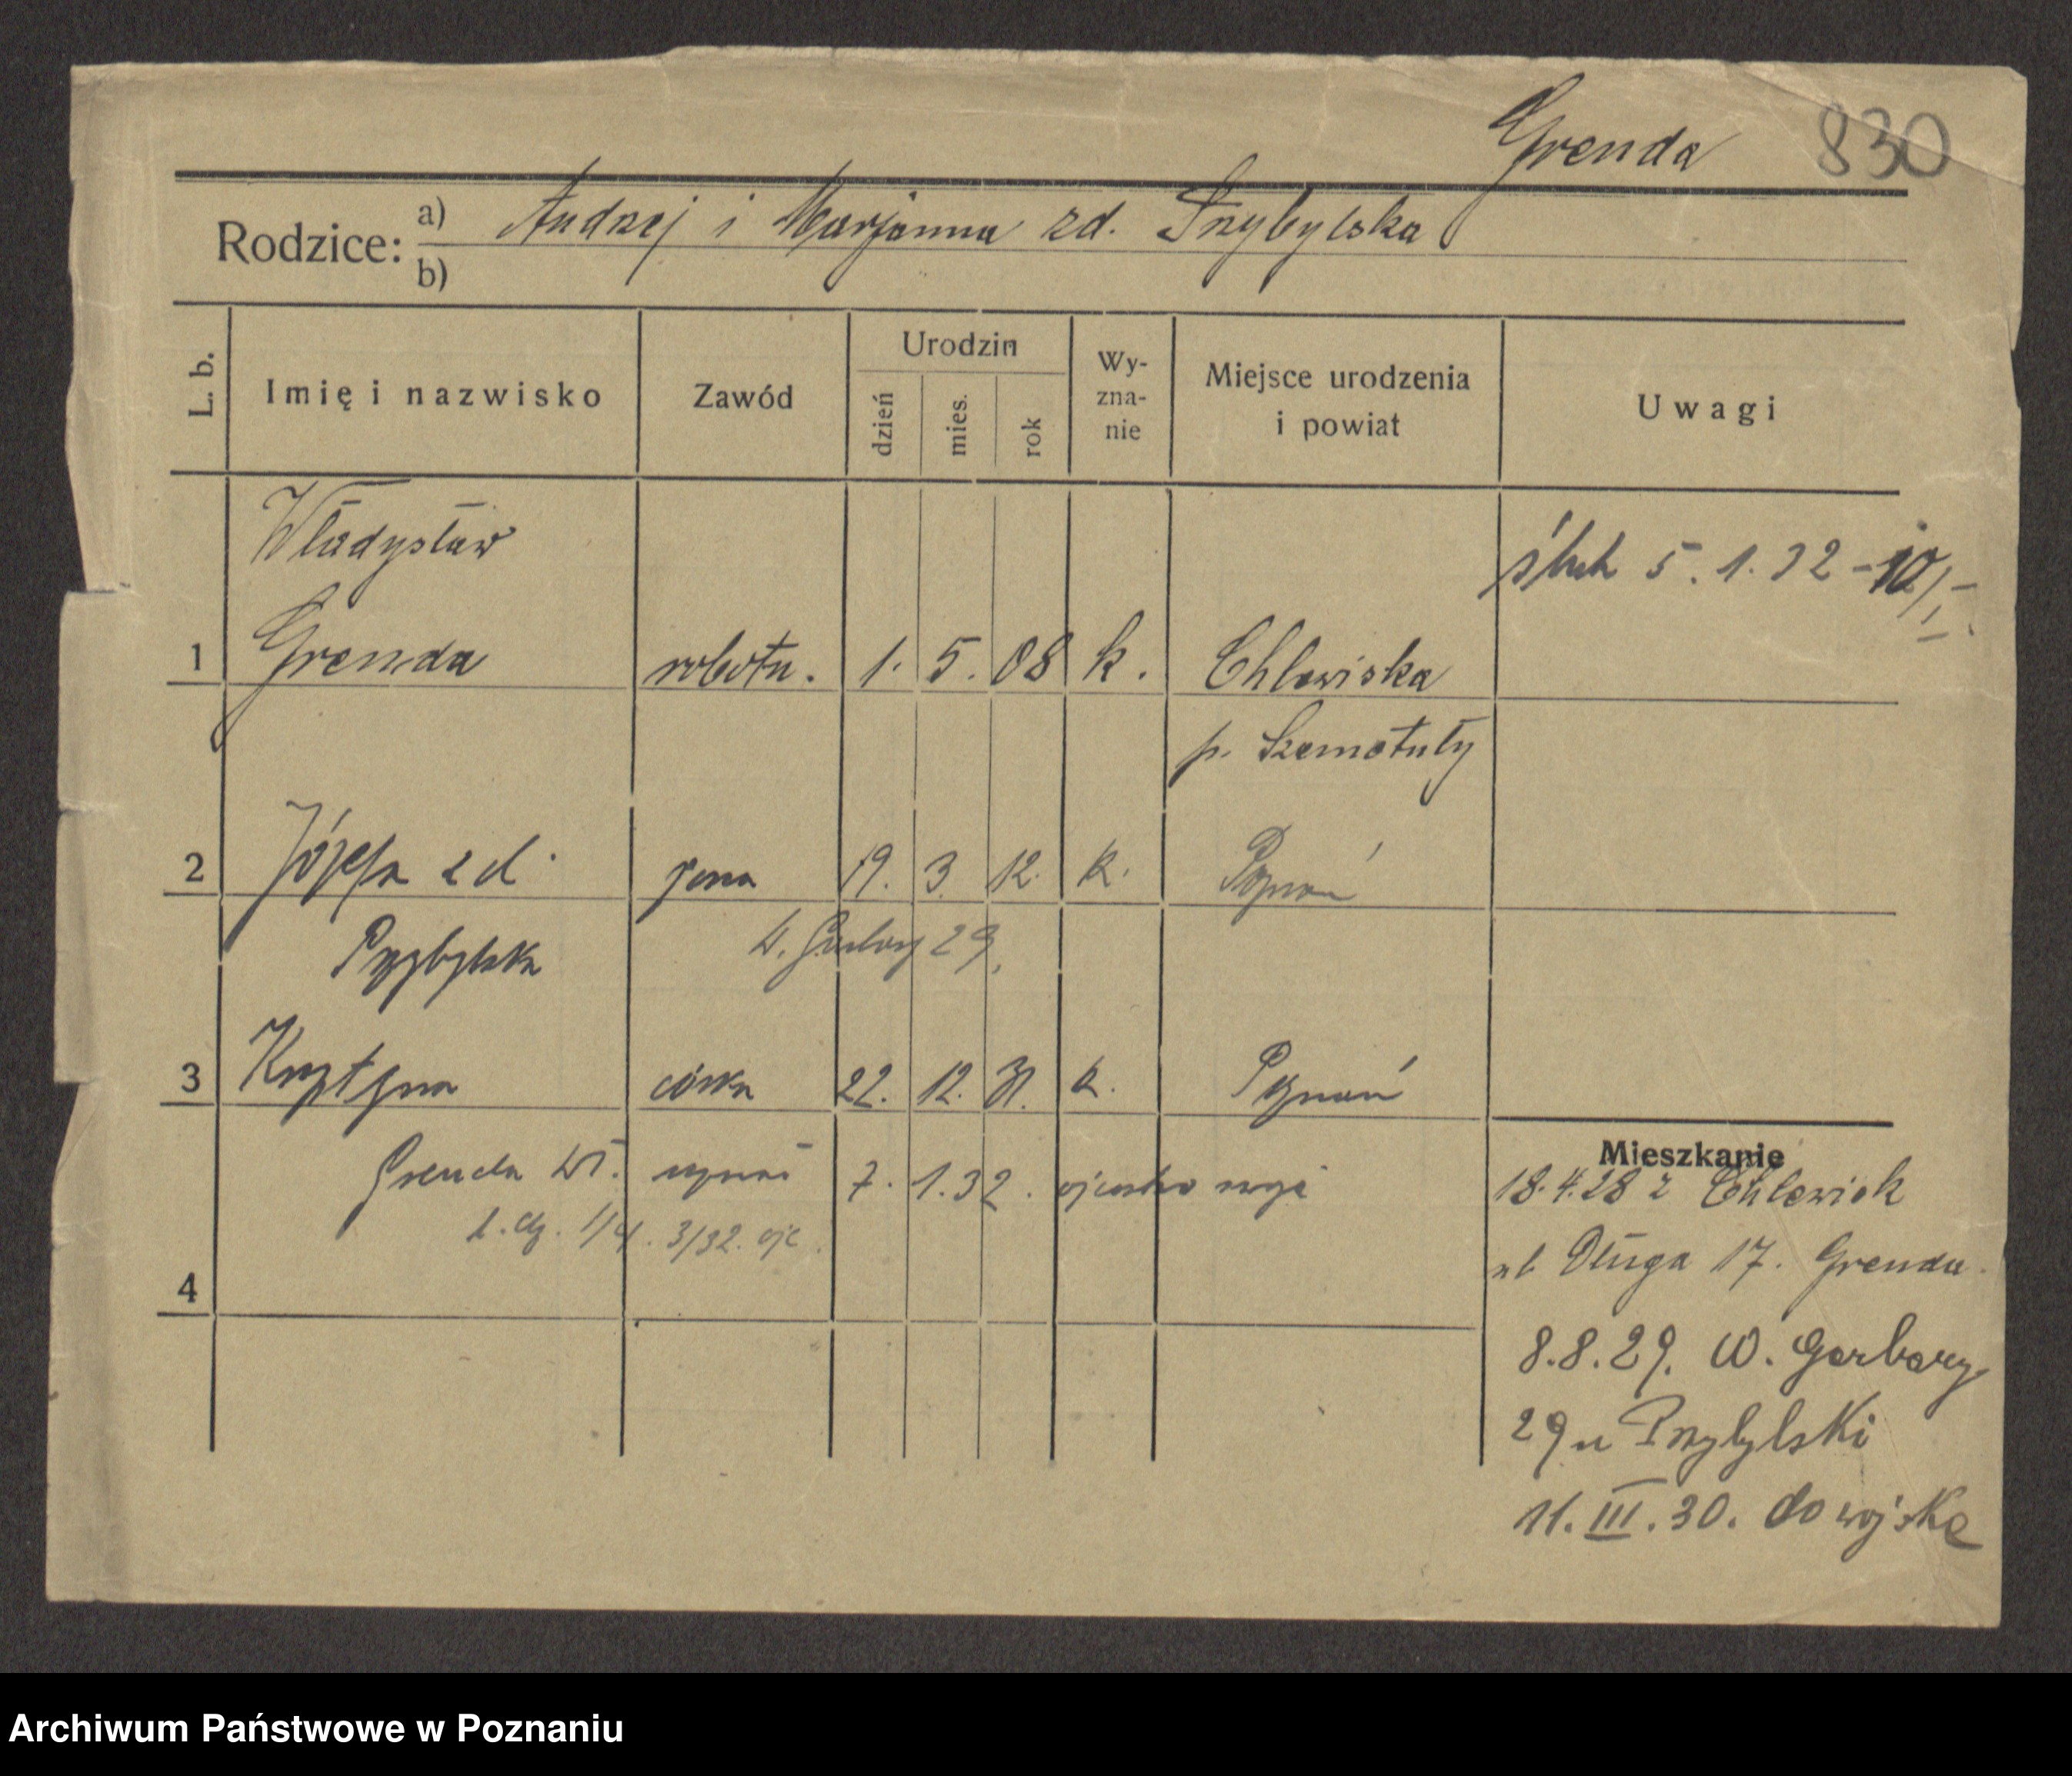 Grenda 830
Rodzice: a) Andrzej i Marjanna zd. Przybylska
b)
L. b. Imię i nazwisko Zawód Urodzin dzień mies. rok Wy-zna-nie Miejsce urodzenia i powiat Uwagi
Władysław ślub 5.1.32 - 10/I
1 Grenda robotn. 1. 5. 08 k. Chlewiska
p. Szamotuły
2 Józefa zd. żona 19. 3. 12. k. Poznań
Przybylska W. Garbary 29.
3 Krystyna córka 22. 12. 31. k. Poznań
Mieszkanie
Grenda Wł. uznał 7. 1. 32. ojcostwo swoje
18.4.28 z Chlewisk
3/32.
4
ul Długa 17. Grenda.
8.8.29. W. Garbary
29 u Przybylski
11. III. 30. do wojska
Archiwum Państwowe w Poznaniu